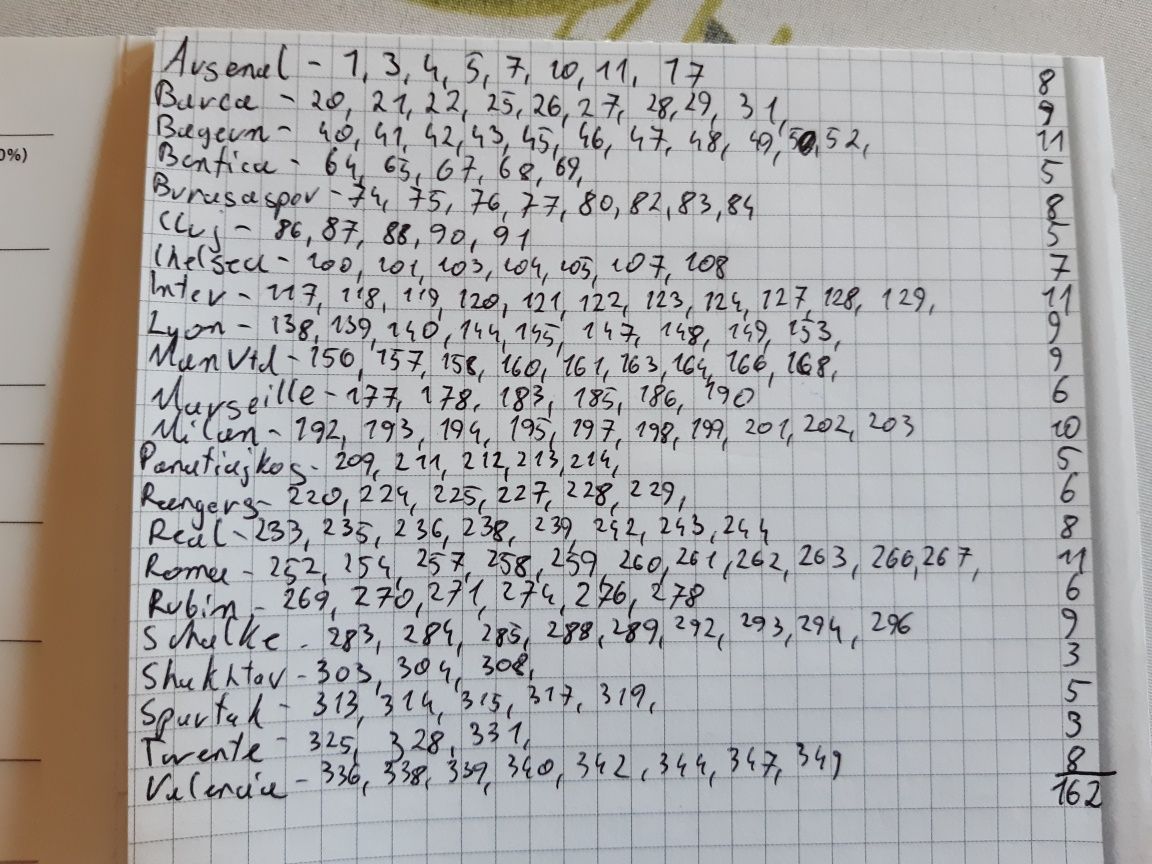 0%)
Arsenal - 1, 3, 4, 5, 7, 10, 11, 17 8
Barca - 20, 21, 22, 25, 26, 27, 28, 29, 31, 9
Bayern - 40, 41, 42, 43, 45, 46, 47, 48, 49, 50, 52, 11
Benfica - 64, 65, 67, 68, 69, 5
Burusaspor - 74, 75, 76, 77, 80, 82, 83, 84 8
Cluj - 86, 87, 88, 90, 91 5
Chelsea - 100, 101, 103, 104, 105, 107, 108 7
Inter - 117, 118, 119, 120, 121, 122, 123, 124, 127, 128, 129, 11
Lyon - 138, 139, 140, 144, 145, 147, 148, 149, 153, 9
Man Utd - 156, 157, 158, 160, 161, 163, 164, 166, 168, 9
Marseille - 177, 178, 183, 185, 186, 190 6
Milan - 192, 193, 194, 195, 197, 198, 199, 201, 202, 203 10
Panatiajkos - 209, 211, 212, 213, 214, 5
Rangers - 220, 224, 225, 227, 228, 229, 6
Real - 233, 235, 236, 238, 239, 242, 243, 244 8
Roma - 252, 254, 257, 258, 259, 260, 261, 262, 263, 266, 267, 11
Rubin - 269, 270, 271, 274, 276, 278 6
Schalke - 283, 284, 285, 288, 289, 292, 293, 294, 296 9
Shakhtar - 303, 304, 308, 3
Spartak - 313, 314, 315, 317, 319, 5
Twente - 325, 328, 331, 3
Valencia - 336, 338, 339, 340, 342, 344, 347, 349 8
162